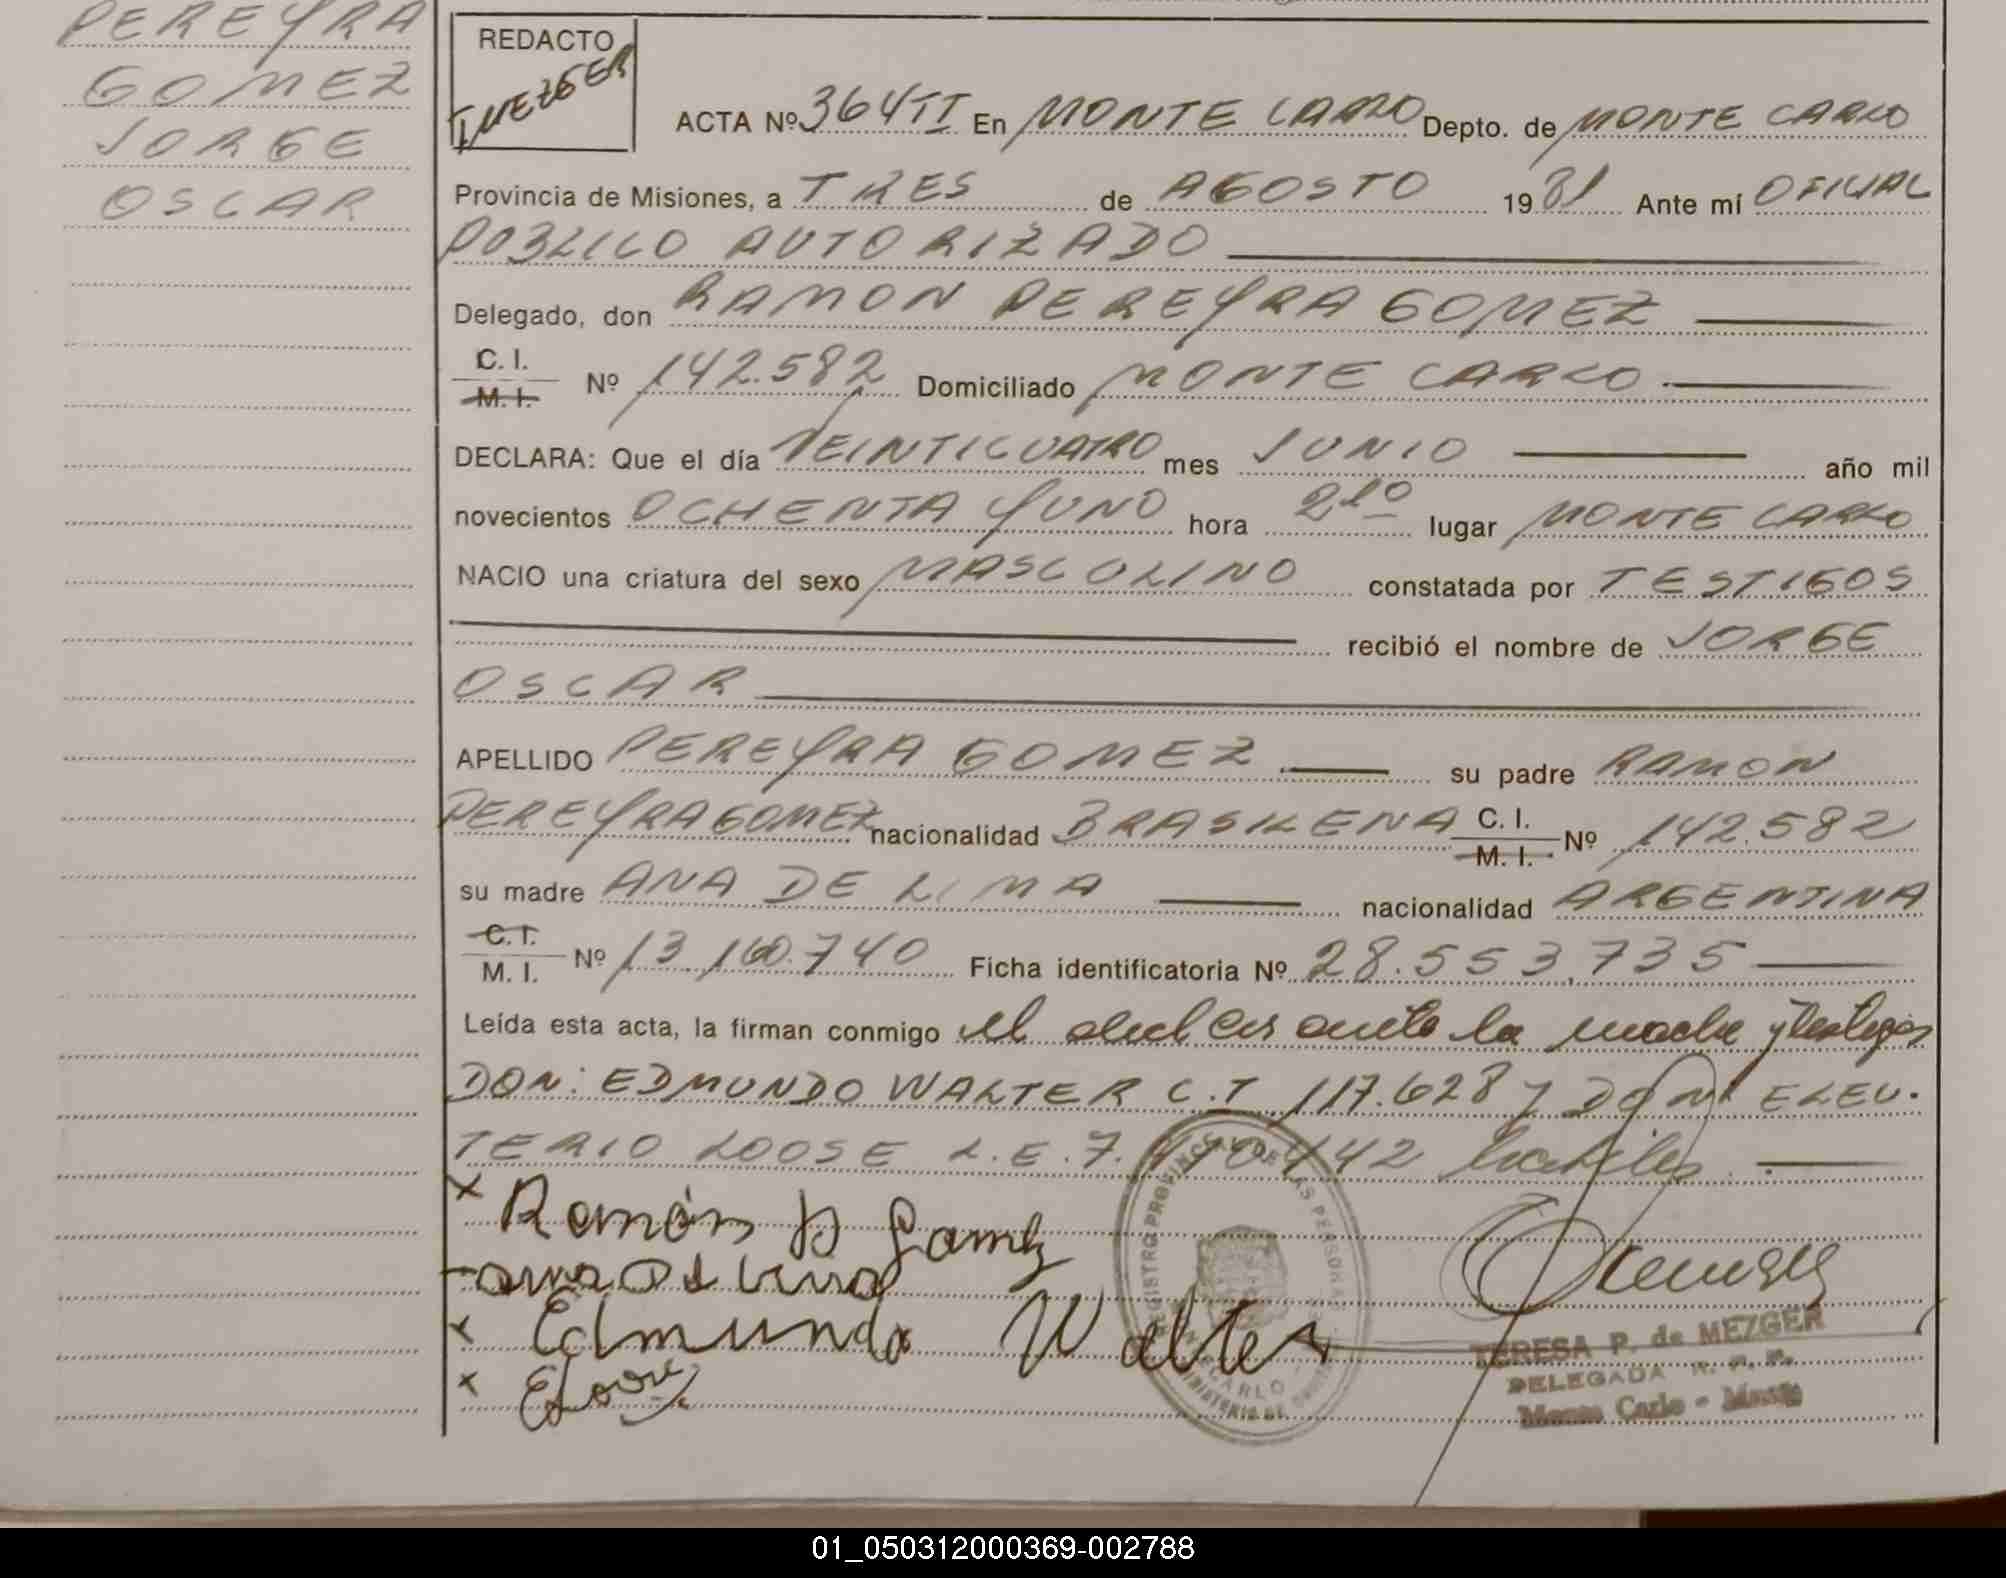 PEREYRA
GOMEZ
JORGE
OSCAR
REDACTO
T MEZGER
ACTA Nº 364 TI En MONTE CARLO Depto. de MONTE CARLO
Provincia de Misiones, a TRES de AGOSTO 1981 Ante mí OFICIAL
PUBLICO AUTORIZADO
Delegado, don RAMON PEREYRA GOMEZ
C. I.
M. I. Nº 142.582 Domiciliado MONTE CARLO
DECLARA: Que el día VEINTICUATRO mes JUNIO año mil
novecientos OCHENTA Y UNO hora lugar MONTE CARLO
NACIO una criatura del sexo MASCULINO constatada por TESTIGOS
recibió el nombre de JORGE
OSCAR
APELLIDO PEREYRA GOMEZ su padre RAMON
PEREYRA GOMEZ nacionalidad BRASILENA C. I.
M. I. Nº 142.582
su madre ANA DE LIMA nacionalidad ARGENTINA
C. I.
M. I. Nº 13.160.740 Ficha identificatoria Nº 28.553.735
Leída esta acta, la firman conmigo el la madre y testigos
DON: EDMUNDO WALTER C.I 117.628 y DON: ELEU.
TERIO LOOSE L.E. 7. 442 habiles.
x Ramón P Gomez
ana De Lima
x Edmundo Walter
x
REGISTRO PROVINCIAL DE LAS PERSONAS
TERESA P. de MEZGER
DELEGADA R. P. P.
Monte Carlo - Mnes
01_050312000369-002788